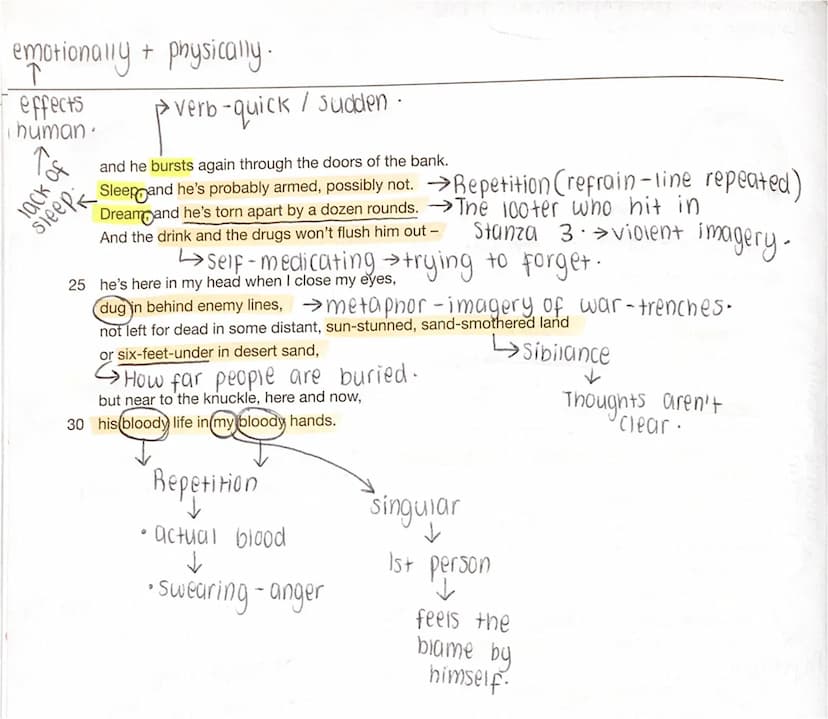 emotionally + physically.
effects human.
lack of sleep.
verb - quick / sudden.
and he bursts again through the doors of the bank.
Sleep, and he's probably armed, possibly not. → Repetition (refrain - line repeated)
Dream, and he's torn apart by a dozen rounds. → The looter who hit in
And the drink and the drugs won't flush him out – stanza 3. → violent imagery.
self-medicating → trying to forget.
25 he's here in my head when I close my eyes,
dug in behind enemy lines, → metaphor - imagery of war - trenches.
not left for dead in some distant, sun-stunned, sand-smothered land
or six-feet-under in desert sand,
Sibilance
How far people are buried.
Thoughts aren't clear.
but near to the knuckle, here and now,
30 his bloody life in my bloody hands.
Repetition
• actual blood
• swearing - anger
singular
1st person
feels the
blame by
himself.